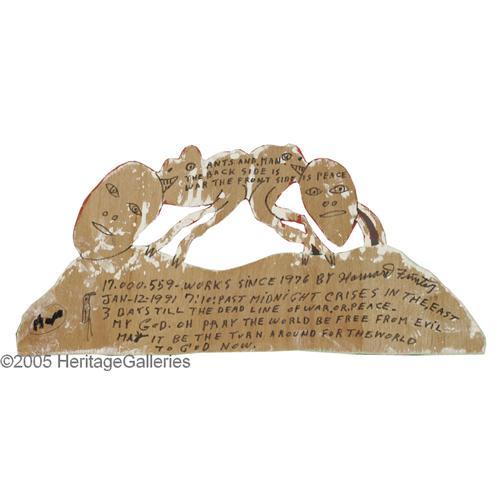 ANTS. AND. MAN
THE BACK SIDE IS
WAR THE FRONT SIDE IS PEACE
17.000.559- WORKS SINCE 1976 BY Howard Finster
JAN-12-1991 7:10: PAST MIDNIGHT CRISES IN THE, EAST
3 DAYS TILL THE DEAD LINE OF WAR. OR. PEACE.
MY GOD. OH PRAY THE WORLD BE FREE FROM EVIL
MAY IT BE THE TURN AROUND FOR THE WORLD
TO GOD NOW.
©2005 HeritageGalleries